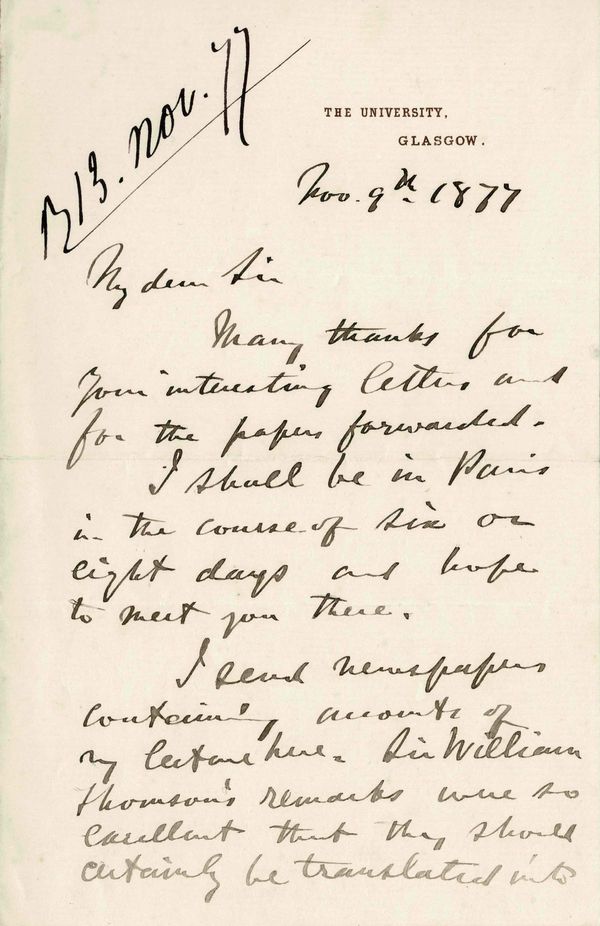 13. Nov. 77
THE UNIVERSITY,
GLASGOW.
Nov. 9th 1877
My dear Sir
Many thanks for
your interesting letter and
for the papers forwarded.
I shall be in Paris
in the course of six or
eight days and hope
to meet you there.
I send newspapers
containing accounts of
my lecture here. Sir William
Thomson's remarks were so
excellent that they should
certainly be translated into